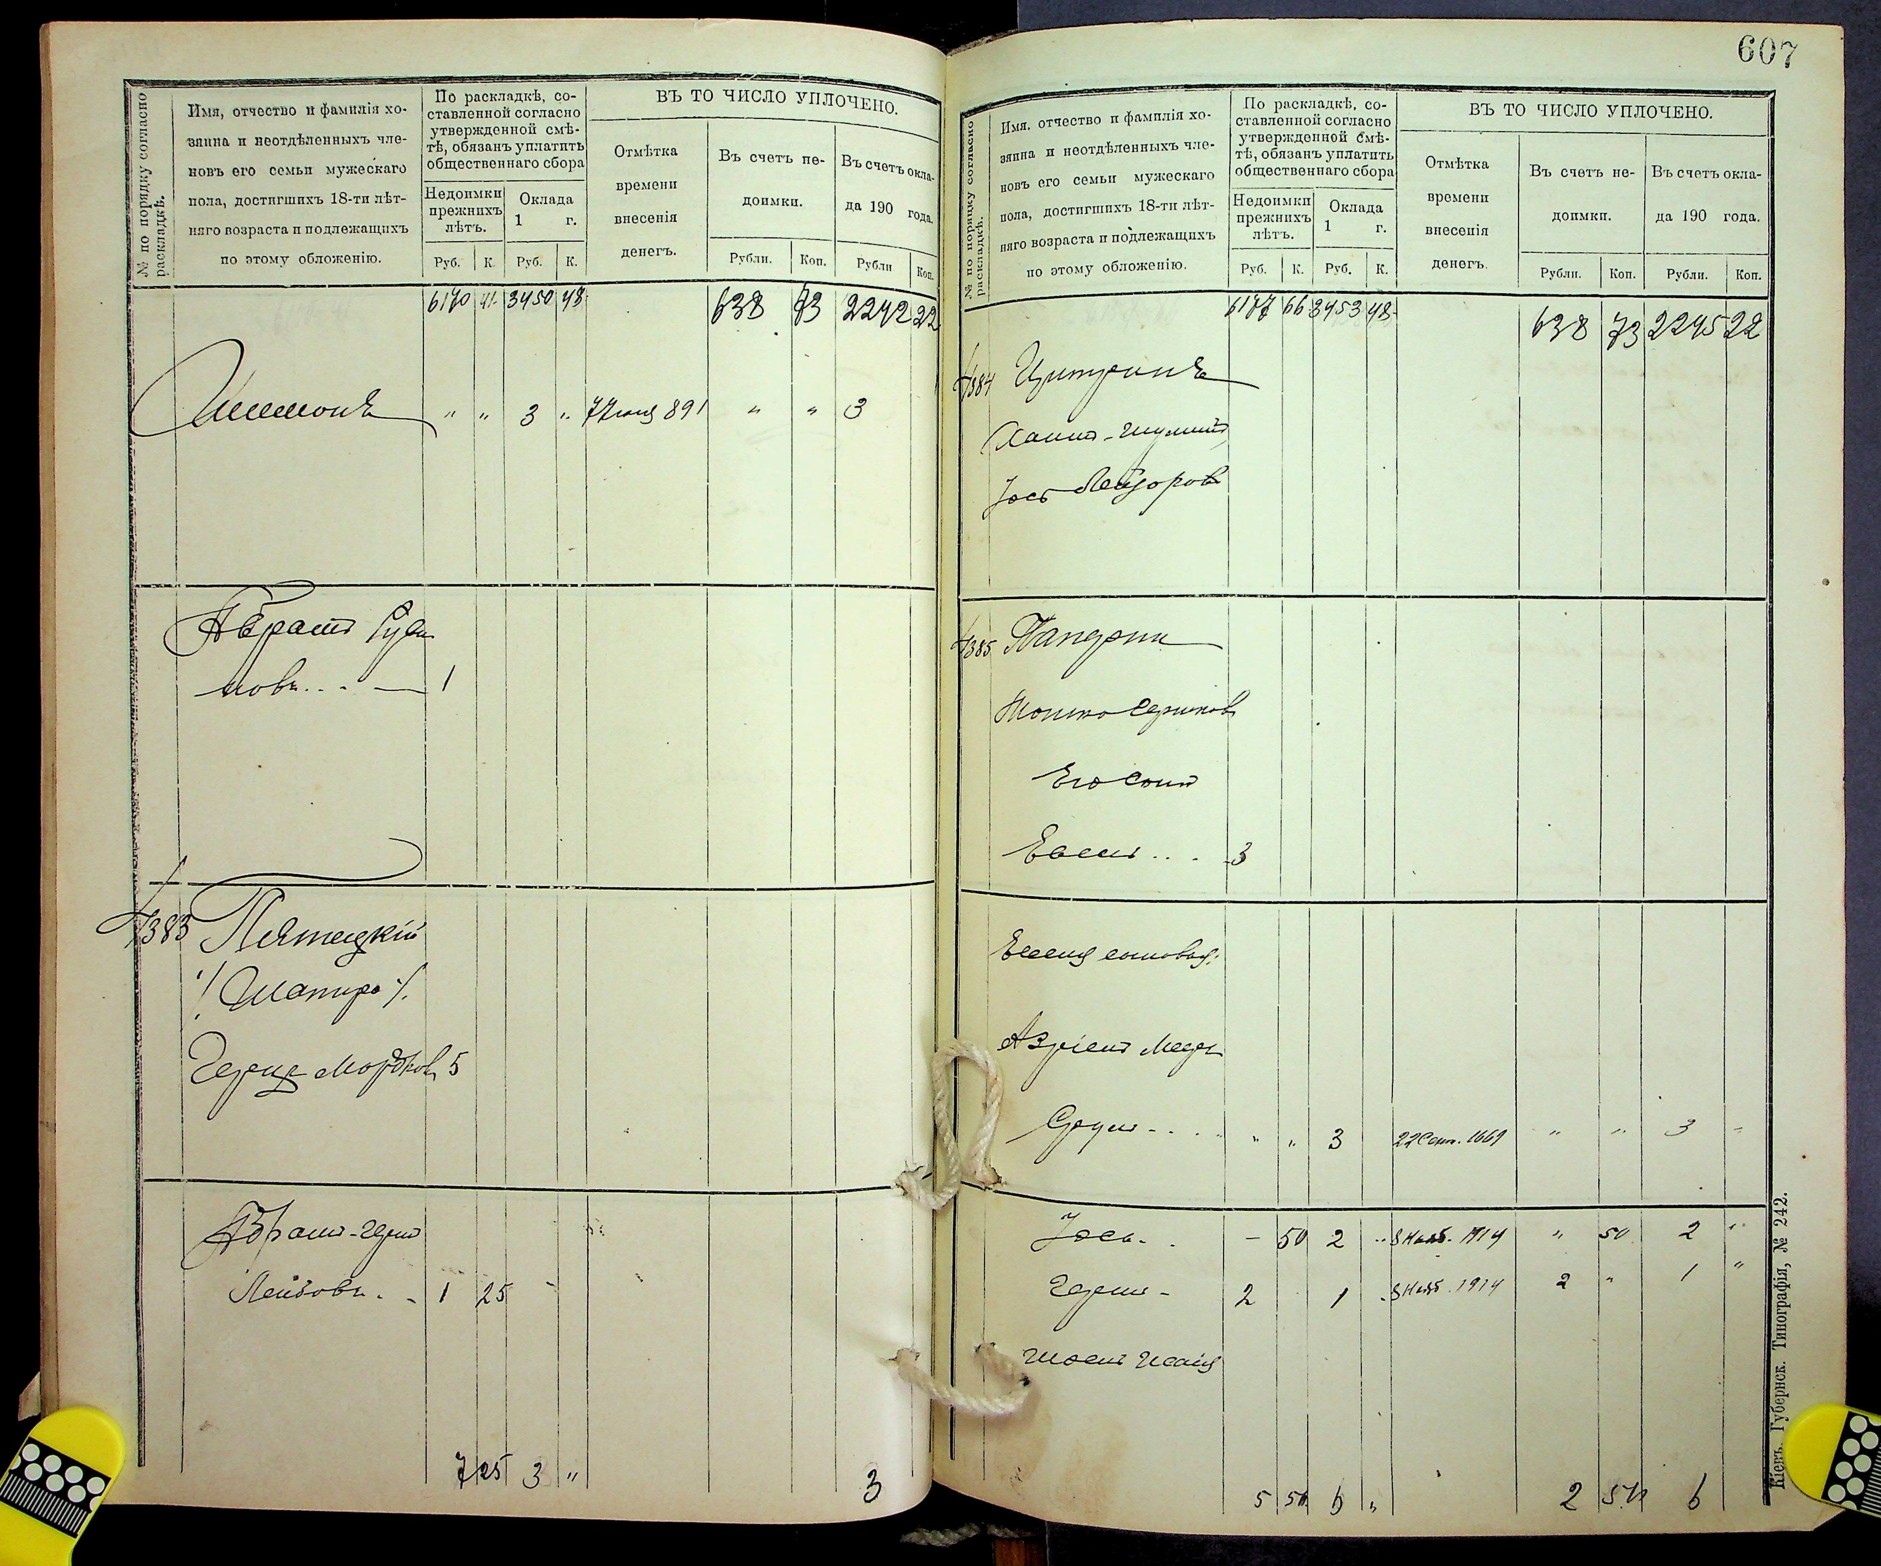 607
№ по порядку согласно раскладкѣ.
Имя, отчество и фамилія хо-
зяина и неотдѣленныхъ чле-
новъ его семьи мужескаго
пола, достигшихъ 18-ти лѣт-
няго возраста и подлежащихъ
по этому обложенію.
По раскладкѣ, со-
ставленной согласно
утвержденной смѣ-
тѣ, обязанъ уплатить
общественнаго сбора
Недоимки
прежнихъ
лѣтъ.
Оклада
1 г.
Руб. К. Руб. К.
ВЪ ТО ЧИСЛО УПЛОЧЕНО.
Отмѣтка
времени
внесенія
денегъ.
Въ счетъ не-
доимки.
Въ счетъ окла-
да 190 года.
Рубли. Коп. Рубли Коп.
6170 41 3450 48 638 73 2242 22
Шимонъ " " 3 " 7 891 " " 3
Абрамъ
новъ . . . — 1
4383 Пятецкій
/ Шапиро /.
Герш Мордков 5
Абрамъ-Герш
Лейбовъ . . 1 25
7 25 3 " 3
№ по порядку согласно раскладкѣ.
Имя, отчество и фамилія хо-
зяина и неотдѣленныхъ чле-
новъ его семьи мужескаго
пола, достигшихъ 18-ти лѣт-
няго возраста и подлежащихъ
по этому обложенію.
По раскладкѣ, со-
ставленной согласно
утвержденной смѣ-
тѣ, обязанъ уплатить
общественнаго сбора
Недоимки
прежнихъ
лѣтъ.
Оклада
1 г.
Руб. К. Руб. К.
ВЪ ТО ЧИСЛО УПЛОЧЕНО.
Отмѣтка
времени
внесенія
денегъ.
Въ счетъ не-
доимки.
Въ счетъ окла-
да 190 года.
Рубли. Коп. Рубли. Коп.
6177 66 3453 48 638 73 2245 22
4384 Цитринъ
Хаимъ-
Іось Лейзоров
4385
Его сынъ
Евсей . . . 3
Азріель Меер
Срулъ - . . . " " 3 22 Сент. 1669 " " 3 "
Іось . . - 50 2 " 8 Нояб. 1914 " 50 2 "
Герш - 2 1 8 Нояб. 1914 2 " 1 "
5 50 6 " 2 50 6
Кіевъ. Губернск. Типографія, № 242.